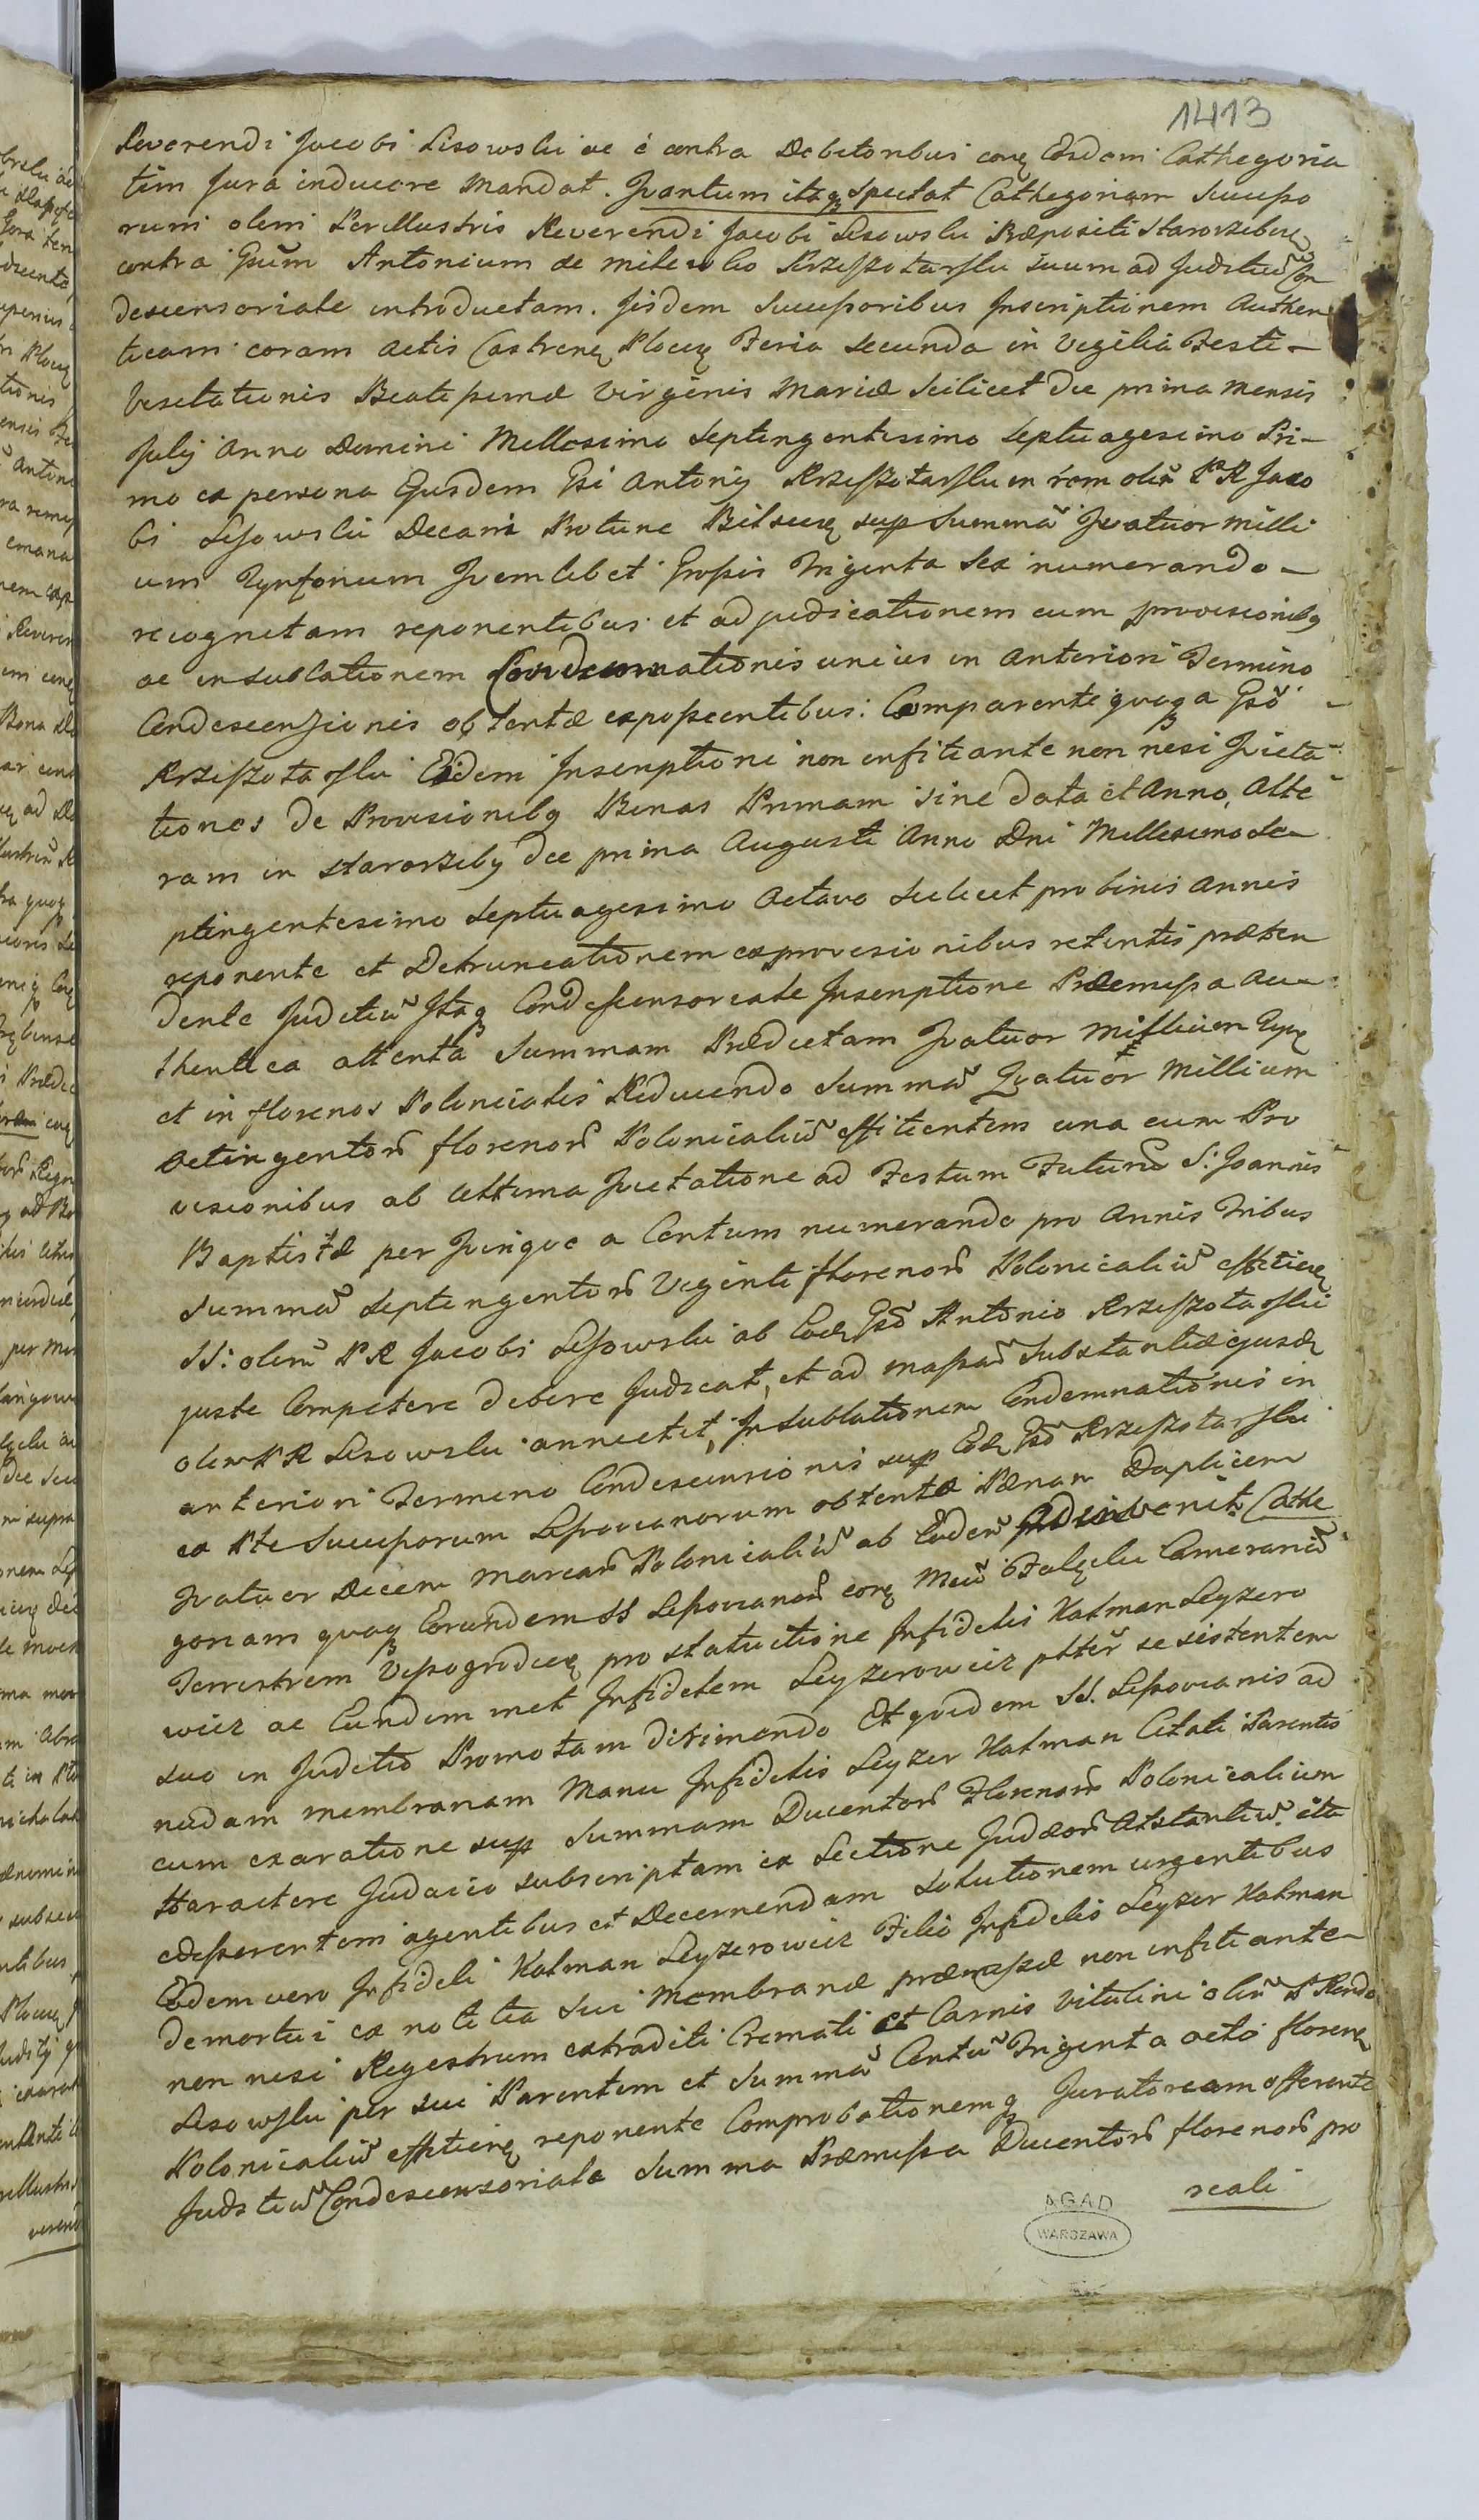 1413
Reverendi Jacobi Lisowski ac è contra Debitoribus conq Eosdem Cathegoria
tim Jura inducere Mandat. Qvantum itaqȝ Spectat Cathegoriam Succeſſo
rum olim Perillustris Reverendi Jacobi Lisowski Præpositi Starorzeben
contra Gsum Antonium de milewko Krzeſzotarſki suum ad Juditiũ Con
descensoriale introductam. Jisdem Succeſſoribus Jnscriptionem Authen
ticam coram Actis Castrenq Plocen Feria Secunda in Vigilia Festi –
Visitationis Beatiſsimæ Virginis Mariæ Scilicet Die prima Mensis
Julij Anno Domini Millesimo Septingentesimo Septuagesimo Pri-
mo ex persona Ejusdem Gsi Antonij Krzeſzotarſki in rem olim P R Jaco
bi Liſowski Decani Protunc Bilscen sup Summã Qvatuor Milli
um Tynfonum Qvemlibet Groſsis Triginta Sex numerando –
recognitam reponentibus et adjudicationem cum provisionibȝ
ac in sublationem Condemnationis unius in Anteriori Termino
Condescensionis obtentæ exposcentibus: Comparente qvoqȝ a Gsõ –
Krzeſzotarſki Eidem Jnscriptioni non infitiante non nisi Qvieta-
tiones de Provisionibȝ Binas Primam sine data et Anno, Alte-
ram in Starorzeby die prima Augusti Anno Dni Millesimo Se-
ptingentesimo Septuagesimo Octavo Scilicet pro binis Annis
reponente et Detruncationem ex provisionibus retentis præten
dente Juditiũ Jtaqȝ Condescensoriale Jnscriptione Præmiſsa Au-
thentica attenta Summam Prædictam Qvatuor Millium Tynf
et in florenos Polonicales Reducendo Summã Qvatuor Millium
Octingentorũ florenorũ Polonicaliũ efficientem una cum Pro
visionibus ab Ultima Qvietatione ad Festum Futurũ S. Joannis
Baptistæ per Qvinqve a Centum numerando pro Annis Tribus
Summã Septingentorũ Viginti florenorũ Polonicaliũ efficien
SS: olim P R Jacobi Liſowski ab Eod Gsõ Antonio Krzeſzotarſki
juste Competere debere Judicat, et ad maſsam Substantiæ ejusd
olim P R Lisowski annectit, Jn Sublationem Condemnationis in
anteriori Termino Condescensionis sup Eod Gsõ Krzeſzotarſki
ex Pte Succeſſorum Liſovianorum obtentæ Pænam Duplicem
Qvatuor Decem Marcarũ Polonicaliũ ab Eodem adinvenit. Cathe
goriam qvoqȝ Eorundem SS Liſovianorũ conq Mcũ Falęcki Camerariũ
Terrestrem Viſsogrodien pro statuitione Jnfidelis Kalman Leyzero
wicz ac Eundem met Jnfidelem Leyzerowicz ptter se sistentem
suo in Juditio Promotam dirimendo Et qvidem SS. Liſsovianis ad
nudam membranam Manu Jnfidelis Leyzer Kalman Citati Parentis
cum exaratione sup Summam Ducentorũ Florenorũ Polonicalium
Haractere Judaico subscriptam ex Lectione Judæorũ Astantiũ ita
ediſserentem agentibus et Decernendam solutionem urgentibus
Eodem vero Jnfideli Kalman Leyzerowicz Filio Jnfidelis Leyzer Kalman
demortui ex notitia sui Membranæ præmiſsæ non infitiante –
non nisi Regestrum extraditi Cremati et Carnis Vitulini olim P Rendo
Lisowſki per sui Parentem et Summã Centũ Triginta octo floren
Polonicaliũ efficien reponente Comprobationemqȝ Juratoream offerente
Juditiũ Condescensoriale Summa Præmiſsa Ducentorũ florenorũ pro
reali
AGAD
WARSZAWA